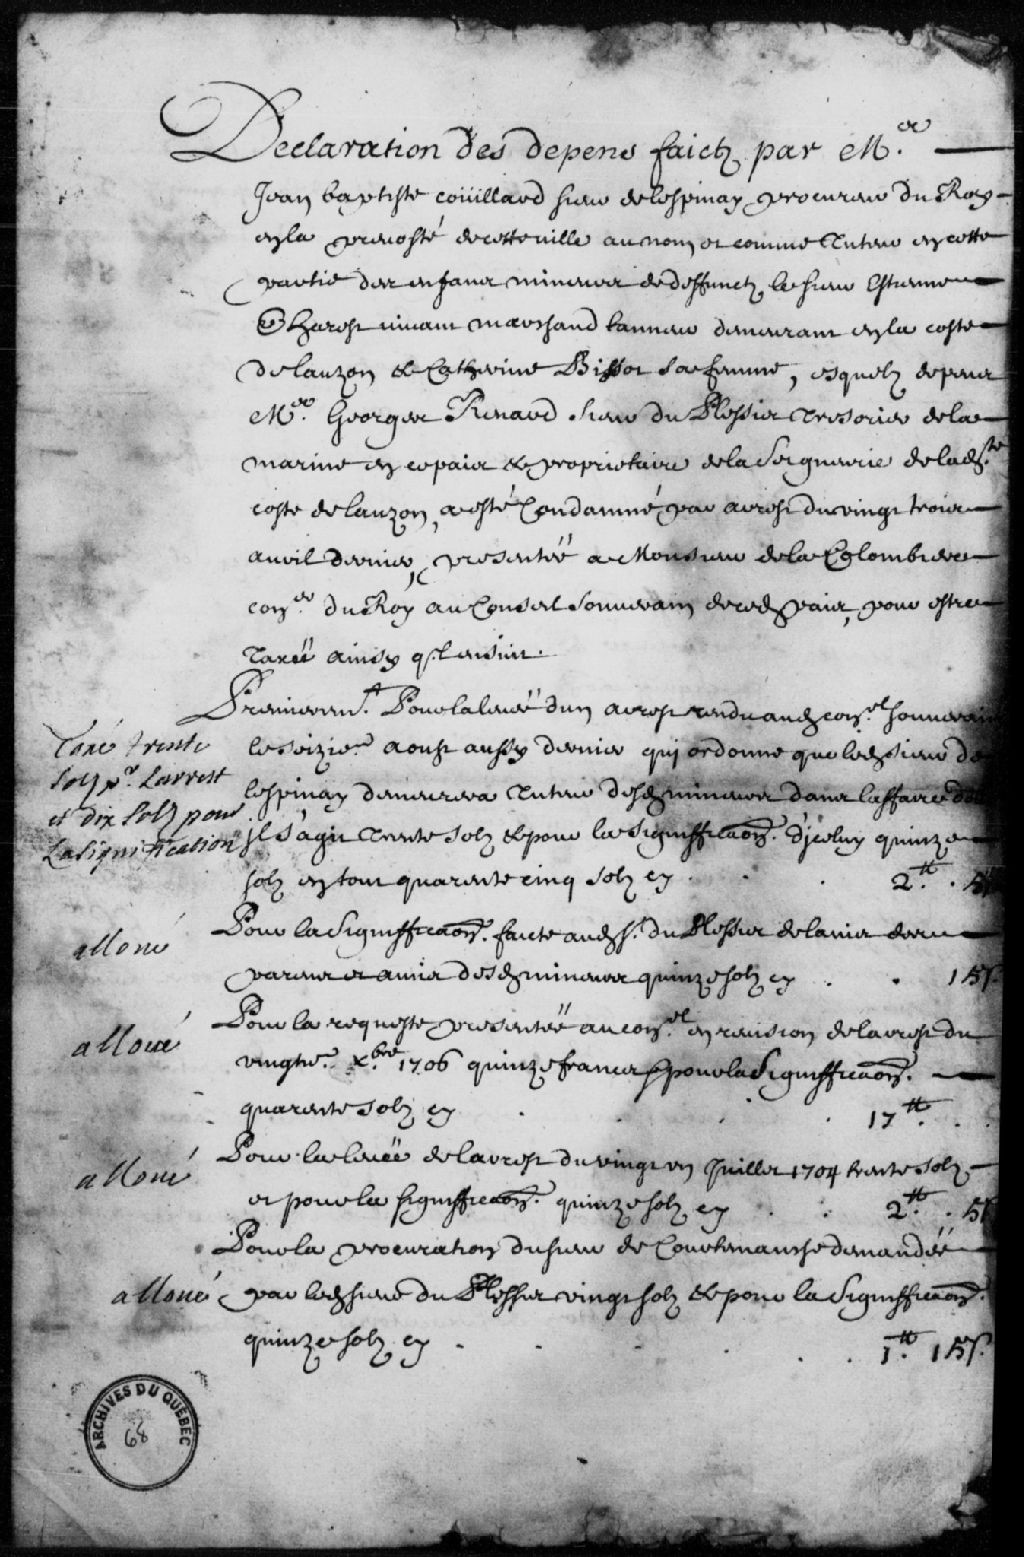 Declaration des depens faictz par Me.
Jean baptiste coüillard sieur delespinay procureur du Roy
en la prevosté de cette ville au nom et comme Tuteur en cette
partie des enfans mineurs de deffunctz le sieur Estienne
Charest vivant marchand tanneur demeurant en la coste
de lauzon & Catherine Bissot sa femme, esquelz depens
Me. Georges Renard sieur du Plessis Tresorier de la
marine en ce païs & proprietaire de la Seigneurie de lad. te
coste de lauzon, a esté Condamné par arrest du vingt trois
avril dernier, presentéë a Monsieur de la Colombiere
coner. du Roy au Conseil Souverain de ced. païs, pour estre
Taxéë ainsy q'il ensuit.
Premieremt. Pour la levéë d'un arrest rendu aud. conel. souverain
Taxé trente
solz pr. Larrest
et dix solz pour
La signification
le seiziee. aoust aussy dernier qui ordonne que led. sieur de
lespinay demeurera Tuteur desd. mineurs dans l'affaire dont
jl s'agit Trente solz & pour la Signifficaon. d'jceluy quinze
solz en tout quarente cinq solz cy . . . 2 tt. 5s
alloué
Pour la Signifficaon. faicte aud. sr. du Plessis de lavis des
parens et amis desd. mineurs quinze solz cy . . 15s.
alloué
Pour la requeste presentéë au conel. en revision de larrest du
vingte. xbre. 1706 quinze francs & pour la Signifficaon.
quarente solz cy . . . 17 tt. . .
alloué
Pour la levéë de larrest du vingt un Juillet 1704 trente solz
et pour la signifficaon. quinze solz cy . . 2 tt. 5s
Pour la procuration du sieur de Courtemanche demandéë
alloué
par led. sieur du Plessis vingt solz & pour la Signifficaon.
quinze solz cy . . . . 1 tt. 15s.
ARCHIVES DU QUÉBEC
68